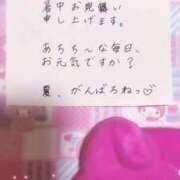 暑中お見舞い
申し上げます。
あちち〜な毎日、
お元気ですか？
夏、がんばろねっ♡